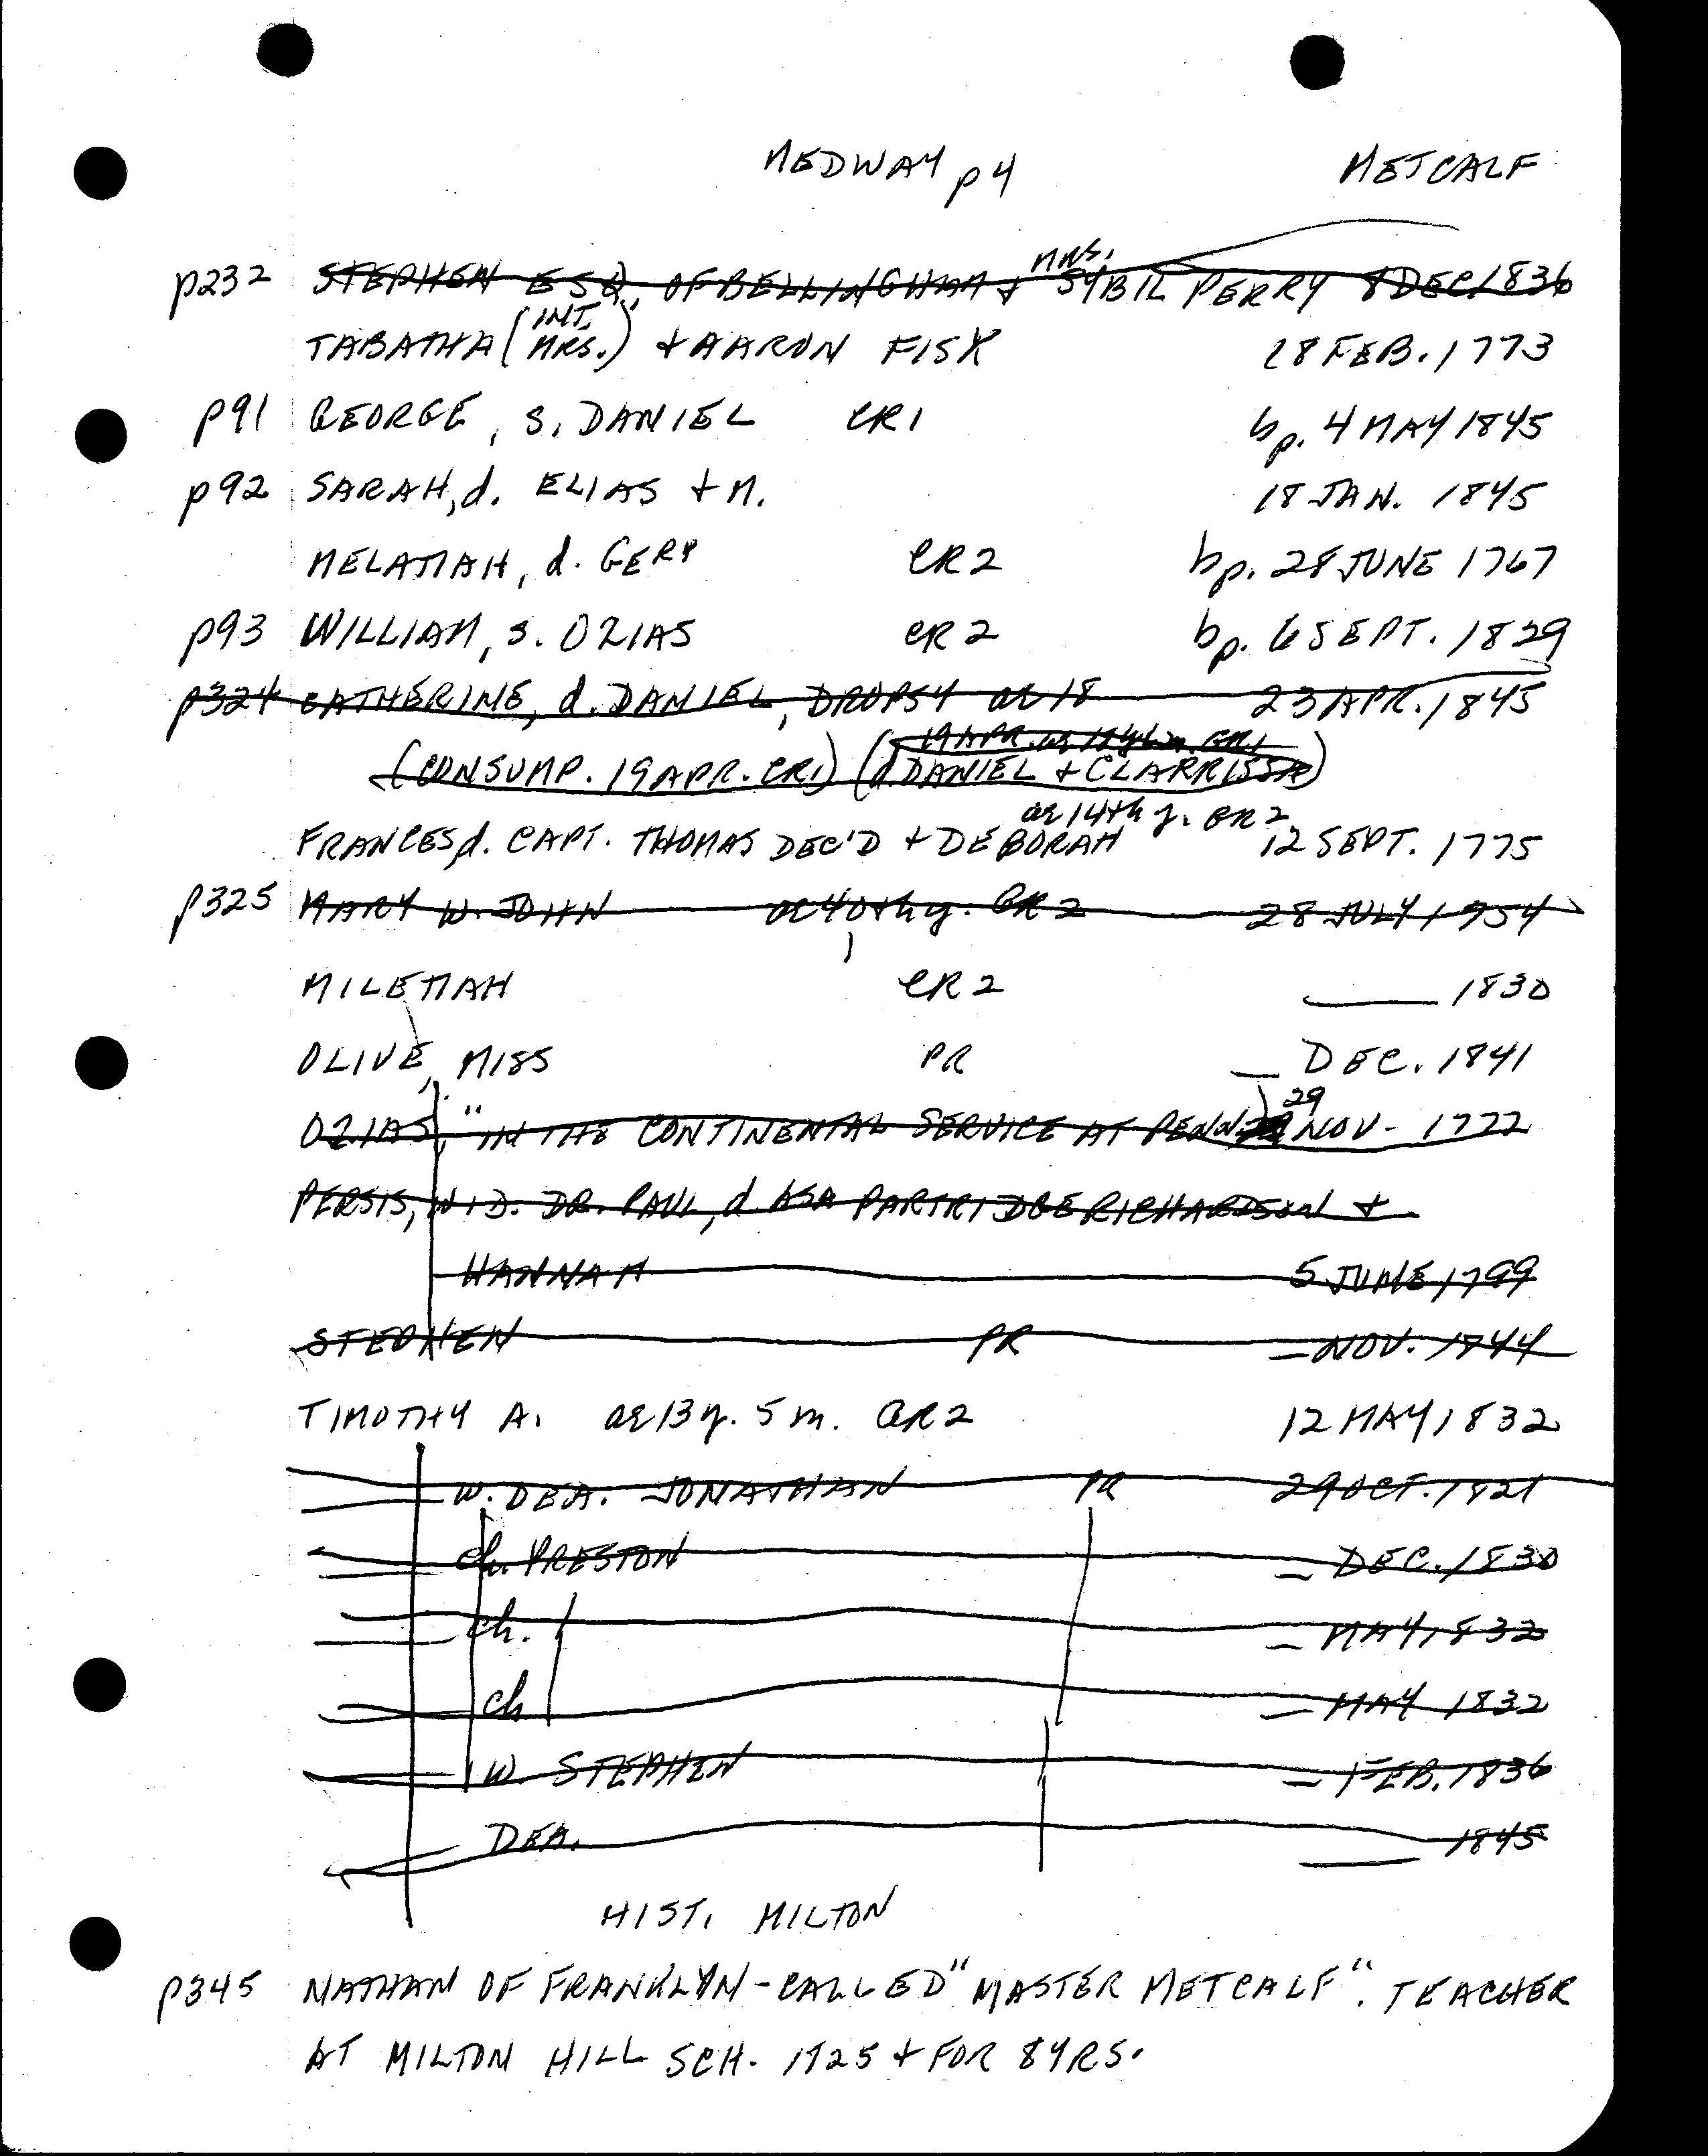 MEDWAY p4 METCALF
p232 STEPHEN ESQ. OF BELLINGHAM + MRS. SYBIL PERRY 8 DEC. 1836
TABATHA (INT. MRS.) + AARON FISK 28 FEB. 1773
p91 GEORGE, S. DANIEL CR1 bp. 4 MAY 1845
p92 SARAH, d. ELIAS + M. 18 JAN. 1845
MELATIAH, d. GERS CR2 bp. 28 JUNE 1767
p93 WILLIAM, S. OZIAS CR2 bp. 6 SEPT. 1829
p324 CATHERINE, d. DANIEL, DROPSY ae 18 23 APR. 1845
19 APR. ae 18 y 6 m. GR1
(CONSUMP. 19 APR. CR1) (d. DANIEL + CLARRISSA)
ae 14th y. GR2
FRANCES, d. CAPT. THOMAS DEC'D + DEBORAH 12 SEPT. 1775
p325 MARY W. JOHN ae 40th y. GR2 28 JULY 1754
MILETIAH CR2 ___ 1830
OLIVE, MISS PR _ DEC. 1841
OZIAS, "IN THE CONTINENTAL SERVICE AT PENN. 29 NOV - 1777
PERSIS, WID. DR. PAUL, d. ASA PARTRIDGE RICHARDSON +
HANNAH 5 JUNE 1799
STEPHEN PR _ NOV. 1844
TIMOTHY A. ae 13 y. 5 m. GR2 12 MAY 1832
w. DEA. JONATHAN PR 29 OCT. 1821
ch. PRESTON _ DEC. 1830
ch. _ MAY 1832
ch _ MAY 1832
w. STEPHEN _ FEB. 1836
DEA. ___ 1845
HIST. MILTON
p345 NATHAN OF FRANKLYN - CALLED "MASTER METCALF". TEACHER
AT MILTON HILL SCH. 1825 + FOR 8 YRS.